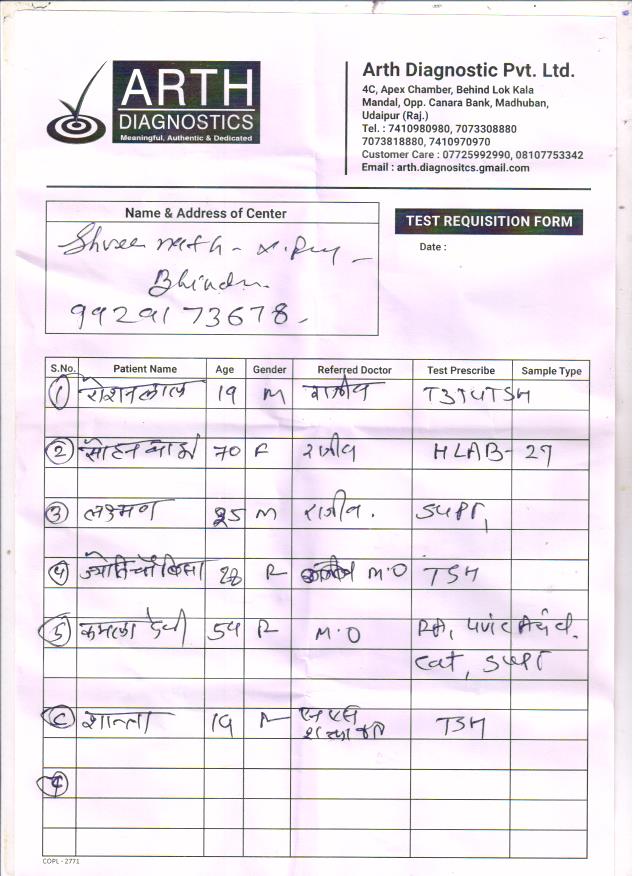 ARTH
DIAGNOSTICS
Meaningful, Authentic & Dedicated
Arth Diagnostic Pvt. Ltd.
4C, Apex Chamber, Behind Lok Kala
Mandal, Opp. Canara Bank, Madhuban,
Udaipur (Raj.)
Tel. : 7410980980, 7073308880
7073818880, 7410970970
Customer Care : 07725992990, 08107753342
Email : arth.diagnositcs.gmail.com
Name & Address of Center
TEST REQUISITION FORM
Date :
Shree nath -
Bhinder
9929173678.
S.No. Patient Name Age Gender Referred Doctor Test Prescribe Sample Type
1 रोशनलाल 19 M राजीव T3T4TSH
2 सोहन बाई 70 F रजीव HLAB- 27
3 लक्ष्मण 25 M राजीव. SGPT,
4 ज्योति चौबिसा 28 F M.O TSH
5 कमला देवी 54 F M.O RA, Uric Acid.
SGPT
6 शान्ता 19 F TSH
COPL - 2771